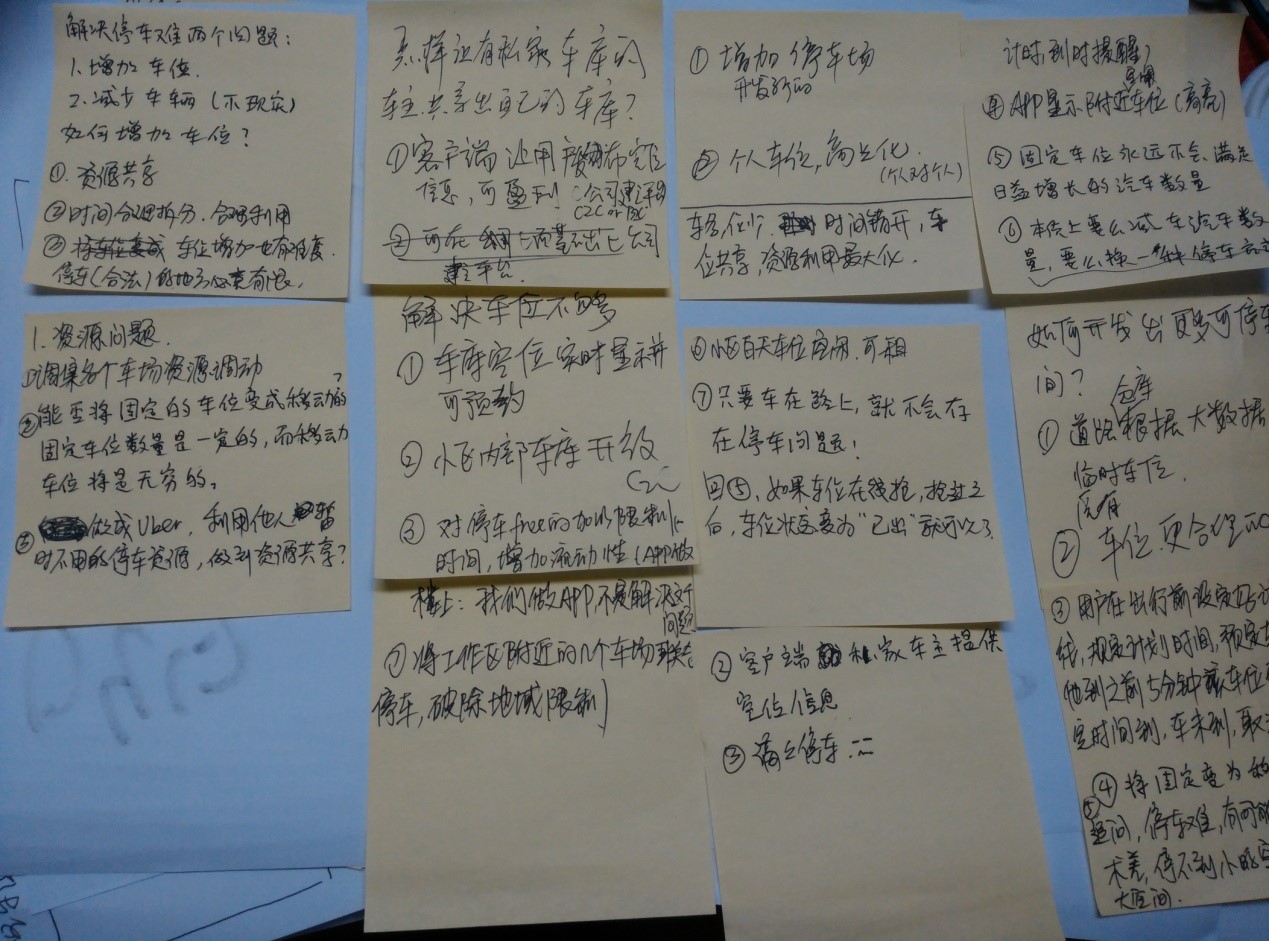 解决停车难两个问题：
1.增加车位.
2.减少车辆（不现实）
如何增加车位？
①.资源共享
②时间合理拆分.合理利用
③ 车位增加也有难度.
停车(合法)的地方必竟有限.
1.资源问题.
①调集各个车场资源.调动
②能否将固定的车位变成移动的?
固定车位数量是一定的,而移动
车位将是无穷的。
③ 做成Uber，利用他人暂
时不用的停车资源，做到资源共享?
怎样让有私家车库的
车主共享出自己的车库？
①客户端 让用户发布空位
信息，可盈利 :公司建平台
C2C or B2C
解决车位不够
①车库空位实时显示并
可预约
②小区内部车库升级
③ 对停车free的加以限制
时间，增加流动性（APP做
楼上：我们做APP,不是解决这个
问题
①将工作区附近的几个车场联合
停车,破除地域限制
① 增加停车场
开发新的
② 个人车位，商业化.
(个人对个人)
车多位少. 时间错开,车
位共享,资源利用最大化.
⑥小区白天车位空闲.可租
⑦只要车在路上，就不会存
在停车问题！
回⑤,如果车位在线抢，抢过之
后，车位状态变为“已出”就可以了
②客户端 私家车主提供
空位信息
③ 满足停车
计时,到时提醒）
④APP显示附近车位（高亮）
⑤固定车位永远不会满足
日益增长的汽车数量
⑥本质上要么减车汽车数
量,要么换一种停车方式
如何开发出更多可停车
间？
①道路 根据大数据
仓库
临时车位.
②车位.更合理
③用户在出行前设定好
线,规定计划时间,预定车
他到之前5分钟 车位
定时间到,车未到,取
④将固定变为移
疑问，停车难，有可能
术差，停不到小的空
大空间.